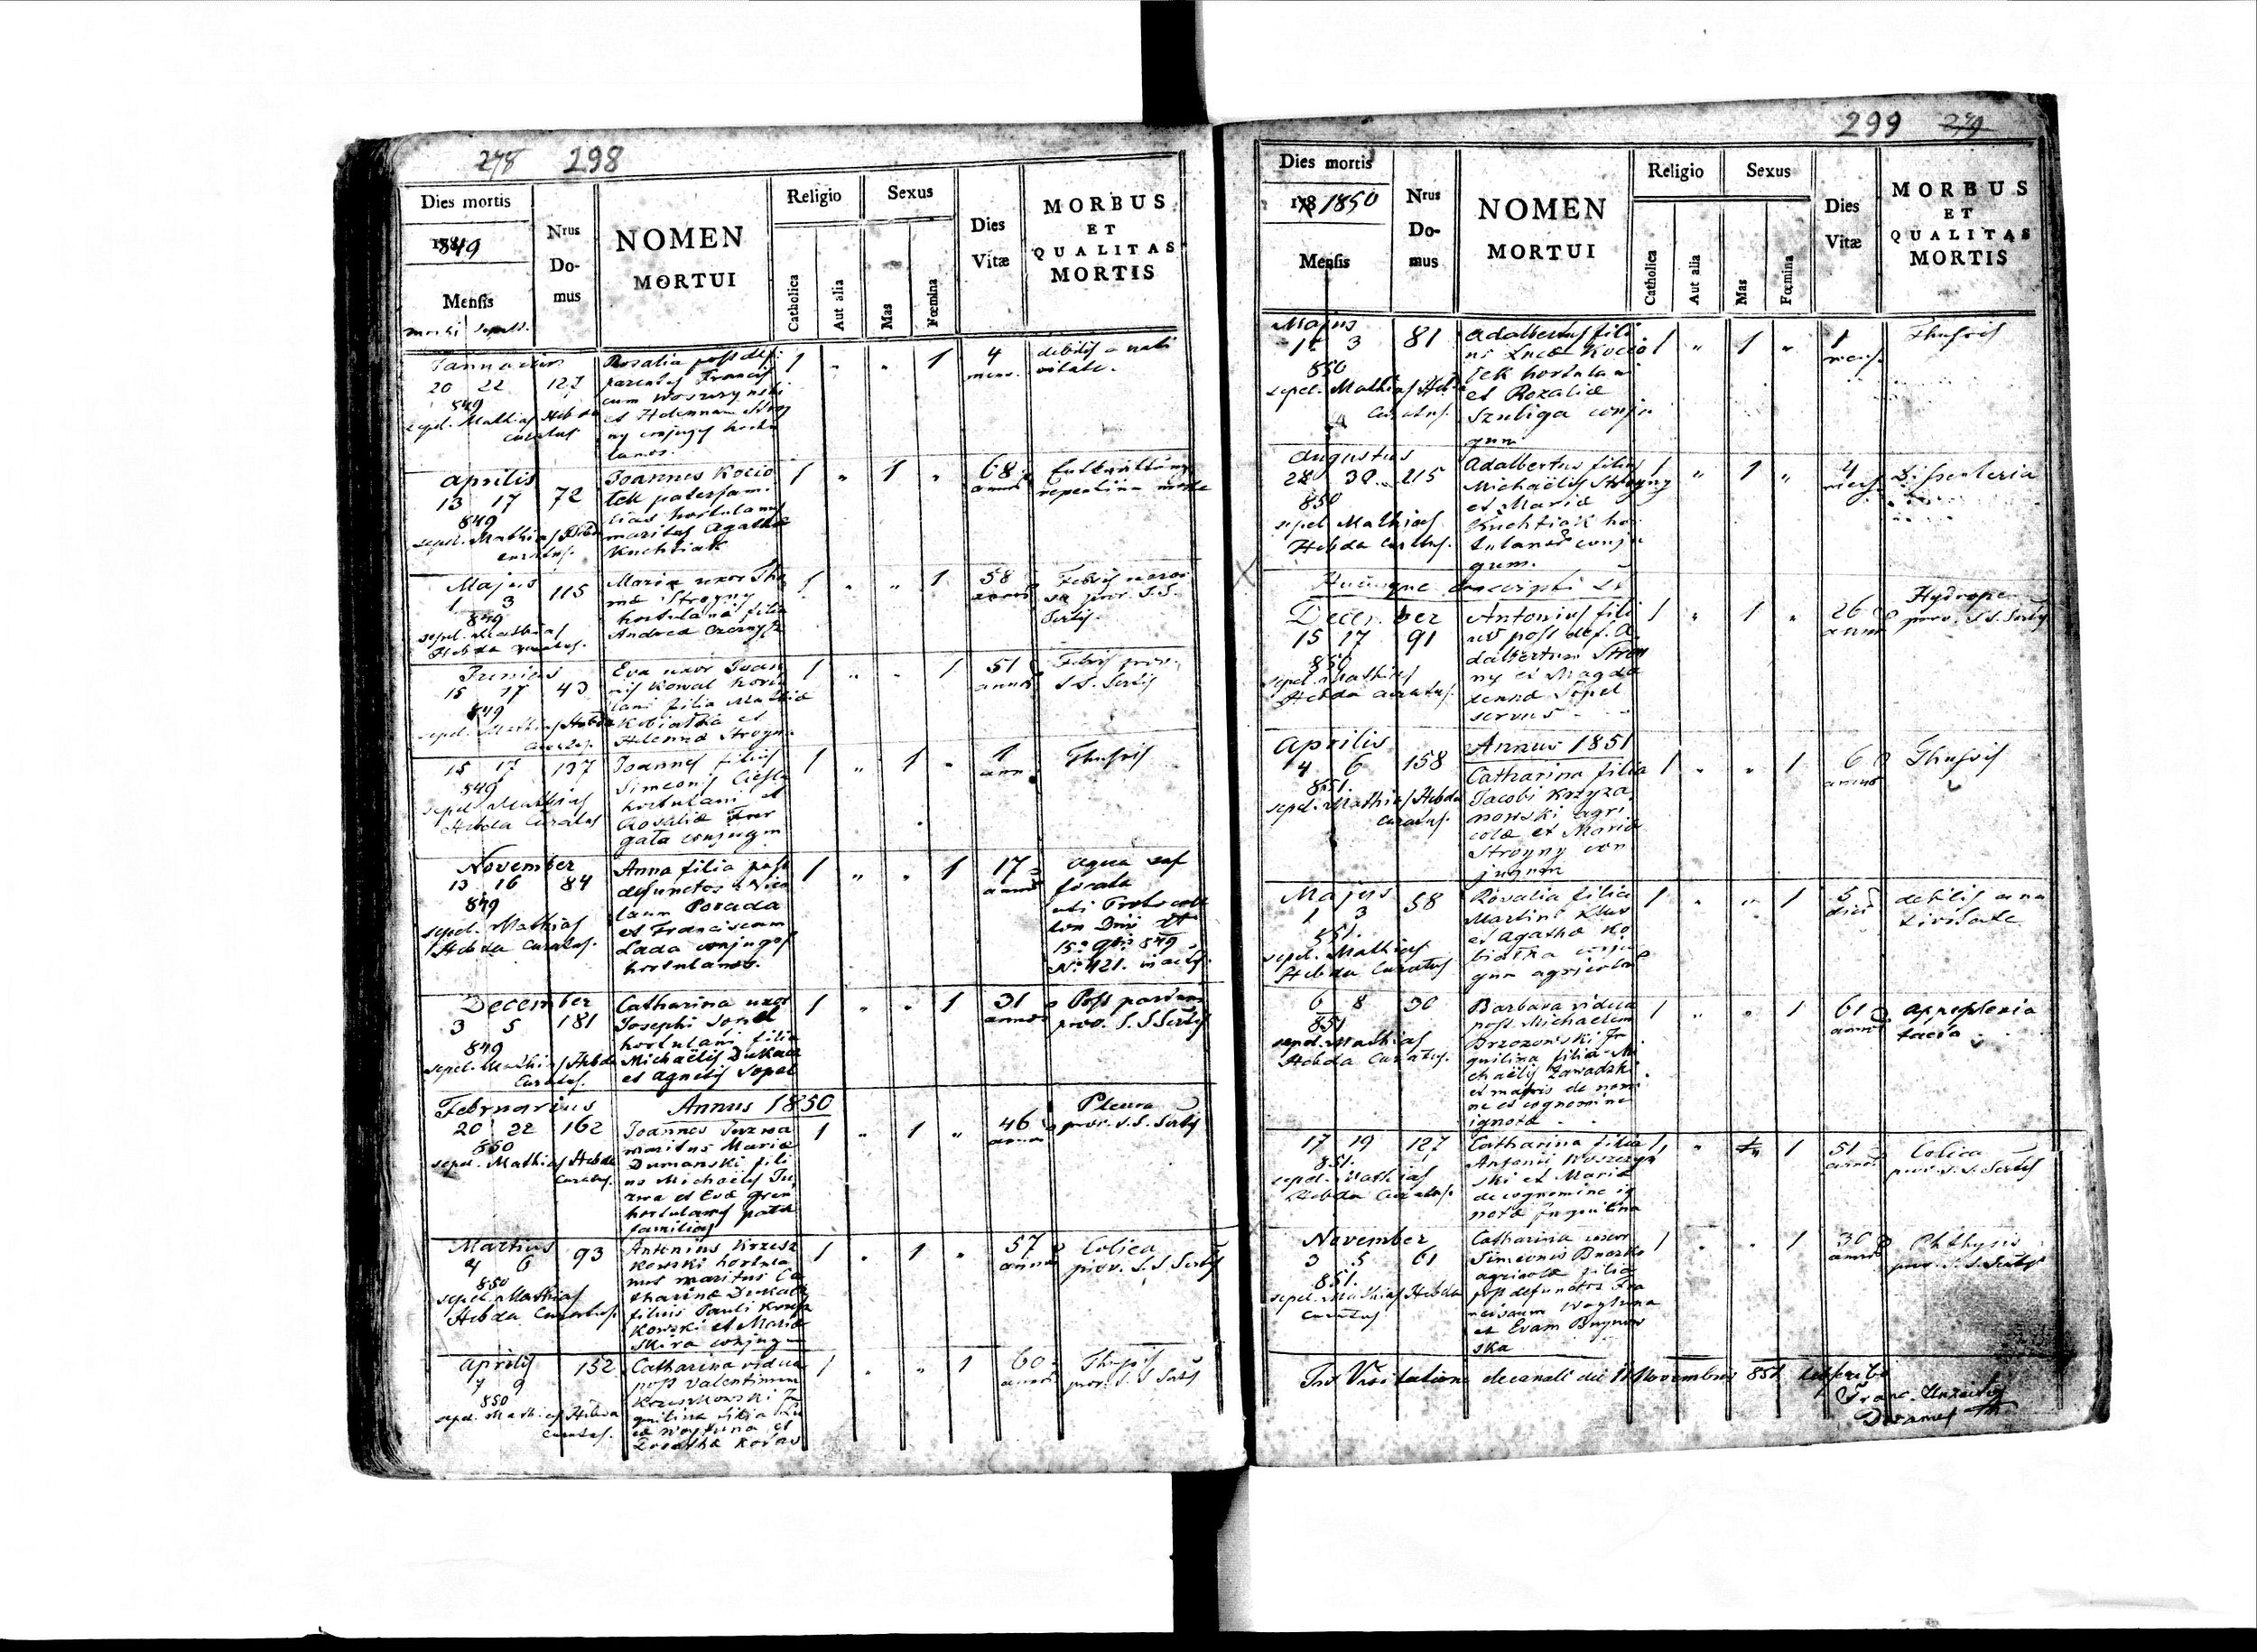 278 298
Dies mortis
1849
Mensis
morti sepult.
Nrus
Do-
mus
NOMEN
MORTUI
Religio
Catholica
Aut alia
Sexus
Mas
Fœmina
Dies
Vitæ
MORBUS
ET
QUALITAS
MORTIS
Januarius
20 22 127
849
sepel. Mathias Hebda
curatus
Rosalia post def.
parentes Francis
cum Woszczynski
et Helennam Stroy
ny conjuges hortu
lanos.
1 " " 1
4
mens.
debilis a nati
vitate.
Aprilis
13 17 72
849
sepel. Mathias Hebda
curatus.
Joannes Kocio
łek paterfam.
lias hortulanus
maritus Agathæ
Kuchtiak
1 " 1 "
68
annos
repentina morte
Majus
1 3 115
849
sepel. Mathias
Hebda curatus.
Maria uxor Tho
mæ Stroyny
hortulana filia
Andreæ
1 " " 1
58
annos
Febris nervo
sa prov. S.S.
Junius
15 17 43
849
sepel. Mathias Hebda
Curatus.
Eva uxor Joan
nis Kowal hortu
lani filia Mathiæ
Kobiałka et
Helennæ Stroyny
1 " " 1
51
annos
Febris prov.
S.S.
15 17 137
849
sepel. Mathias
Hebda Curatus
Joannes filius
Simeonis Ciesla
hortulani et
Rosaliæ
gała conjugum
1 " 1 "
1
ann.
Thusris
November
13 16 84
849
sepel. Mathias
Hebda Curatus.
Anna filia post
defunctos Nico
laum Porada
et Franciscam
Lada conjuges
hortulanos.
1 " " 1
17
annos
aqua suf
focata
uti Protocol
lon
849
No 421.
December
3 5 181
849
sepel. Mathias Hebda
Curatus.
Catharina uxor
Josephi Sopel
hortulani filia
Michaëlis Dukacz
et Agnetis Sopel
1 " " 1
31
annos
Post partum
prov. S.S.
Februarius
20 22 162
850
sepel. Mathias Hebda
Curatus.
Annus 1850
Joannes
maritus Mariæ
Dumanski fili
us Michaëlis
et Evæ
hortulanus pater
familias
1 " 1 "
46
annos
Pleura
prov. S.S.
Martius
4 6 93
850
sepel. Mathias
Hebda Curatus.
Antonius Krzesz
kowski hortula
nus maritus Ca
tharinæ Dukacz
filius Pauli Krzesz
kowski et Mariæ
Skira conjugum
1 " 1 "
57
annos
Colica
prov. S.S.
Aprilis
7 9 152
850
sepel. Mathias Hebda
Curatus.
Catharina vidua
post Valentinum
Krzeszkowski In
quilina filia Lu
cæ Woytuna et
1 " " 1
60
annos
prov. S.S.
299 279
Dies mortis
178 1850
Mensis
Nrus
Do-
mus
NOMEN
MORTUI
Religio
Catholica
Aut alia
Sexus
Mas
Fœmina
Dies
Vitæ
MORBUS
ET
QUALITAS
MORTIS
Majus
1 3 81
850
sepel. Mathias Hebda
Curatus.
Adalbertus fili
us Lucæ Kocio
łek hortulani
et Rozaliæ
Szubiga conju
gum
1 " 1 "
1
mens.
Thusris
Augustus
28 30 215
850
sepel. Mathias
Hebda Curatus.
Adalbertus filius
Michaëlis Stroyny
et Mariæ
Kuchtiak hor
tulanor conju
gum.
1 " 1 "
mens.
Dissenteria
December
15 17 91
850
sepel. Mathias
Hebda curatus.
Antonius fili
us post def. A
dalbertum Stroy
ny et Magda
lennæ Sopel
servus
1 " 1 "
26
annos
prov. S.S.
Aprilis
4 6 158
851.
sepel. Mathias Hebda
Curatus.
Annus 1851
Catharina filia
Jacobi Krzyża
nowski agri
colæ et Mariæ
Stroyny con
jugum
1 " " 1
6
annos
Thusris
Majus
1 3 58
851.
sepel. Mathias
Hebda Curatus
Rosalia filia
Martini Klus
et Agathæ Ko
białka conju
gum agricolar
1 " " 1
5
dies
debilis a na
tivitate
6 8 30
851
sepel. Mathias
Hebda Curatus.
Barbara vidua
post Michaëlem
Brzozowski In
quilina filia Mi
chaëlis Zawadzki
et matris de nomi
ne et cognomine
ignotæ
1 " " 1
61
annos
apoplexia
tacta
17 19 127
851.
sepel. Mathias
Hebda Curatus.
Catharina filia
Antonii Woszczyn
ski et Mariæ
de cognomine ig
notæ Inquilina
1 " 1
51
annos
Colica
prov. S.S.
November
3 5 61
851.
sepel. Mathias Hebda
curatus
Catharina uxor
Simeonis
agricolæ filia
post defunctos Fra
nciscum Woytuna
et Evam
ska
1 " " 1
30
annos
Phthysis
prov. S.S.
In Visitatione decanali die 11 Novembris 851
Franc.
Decanus